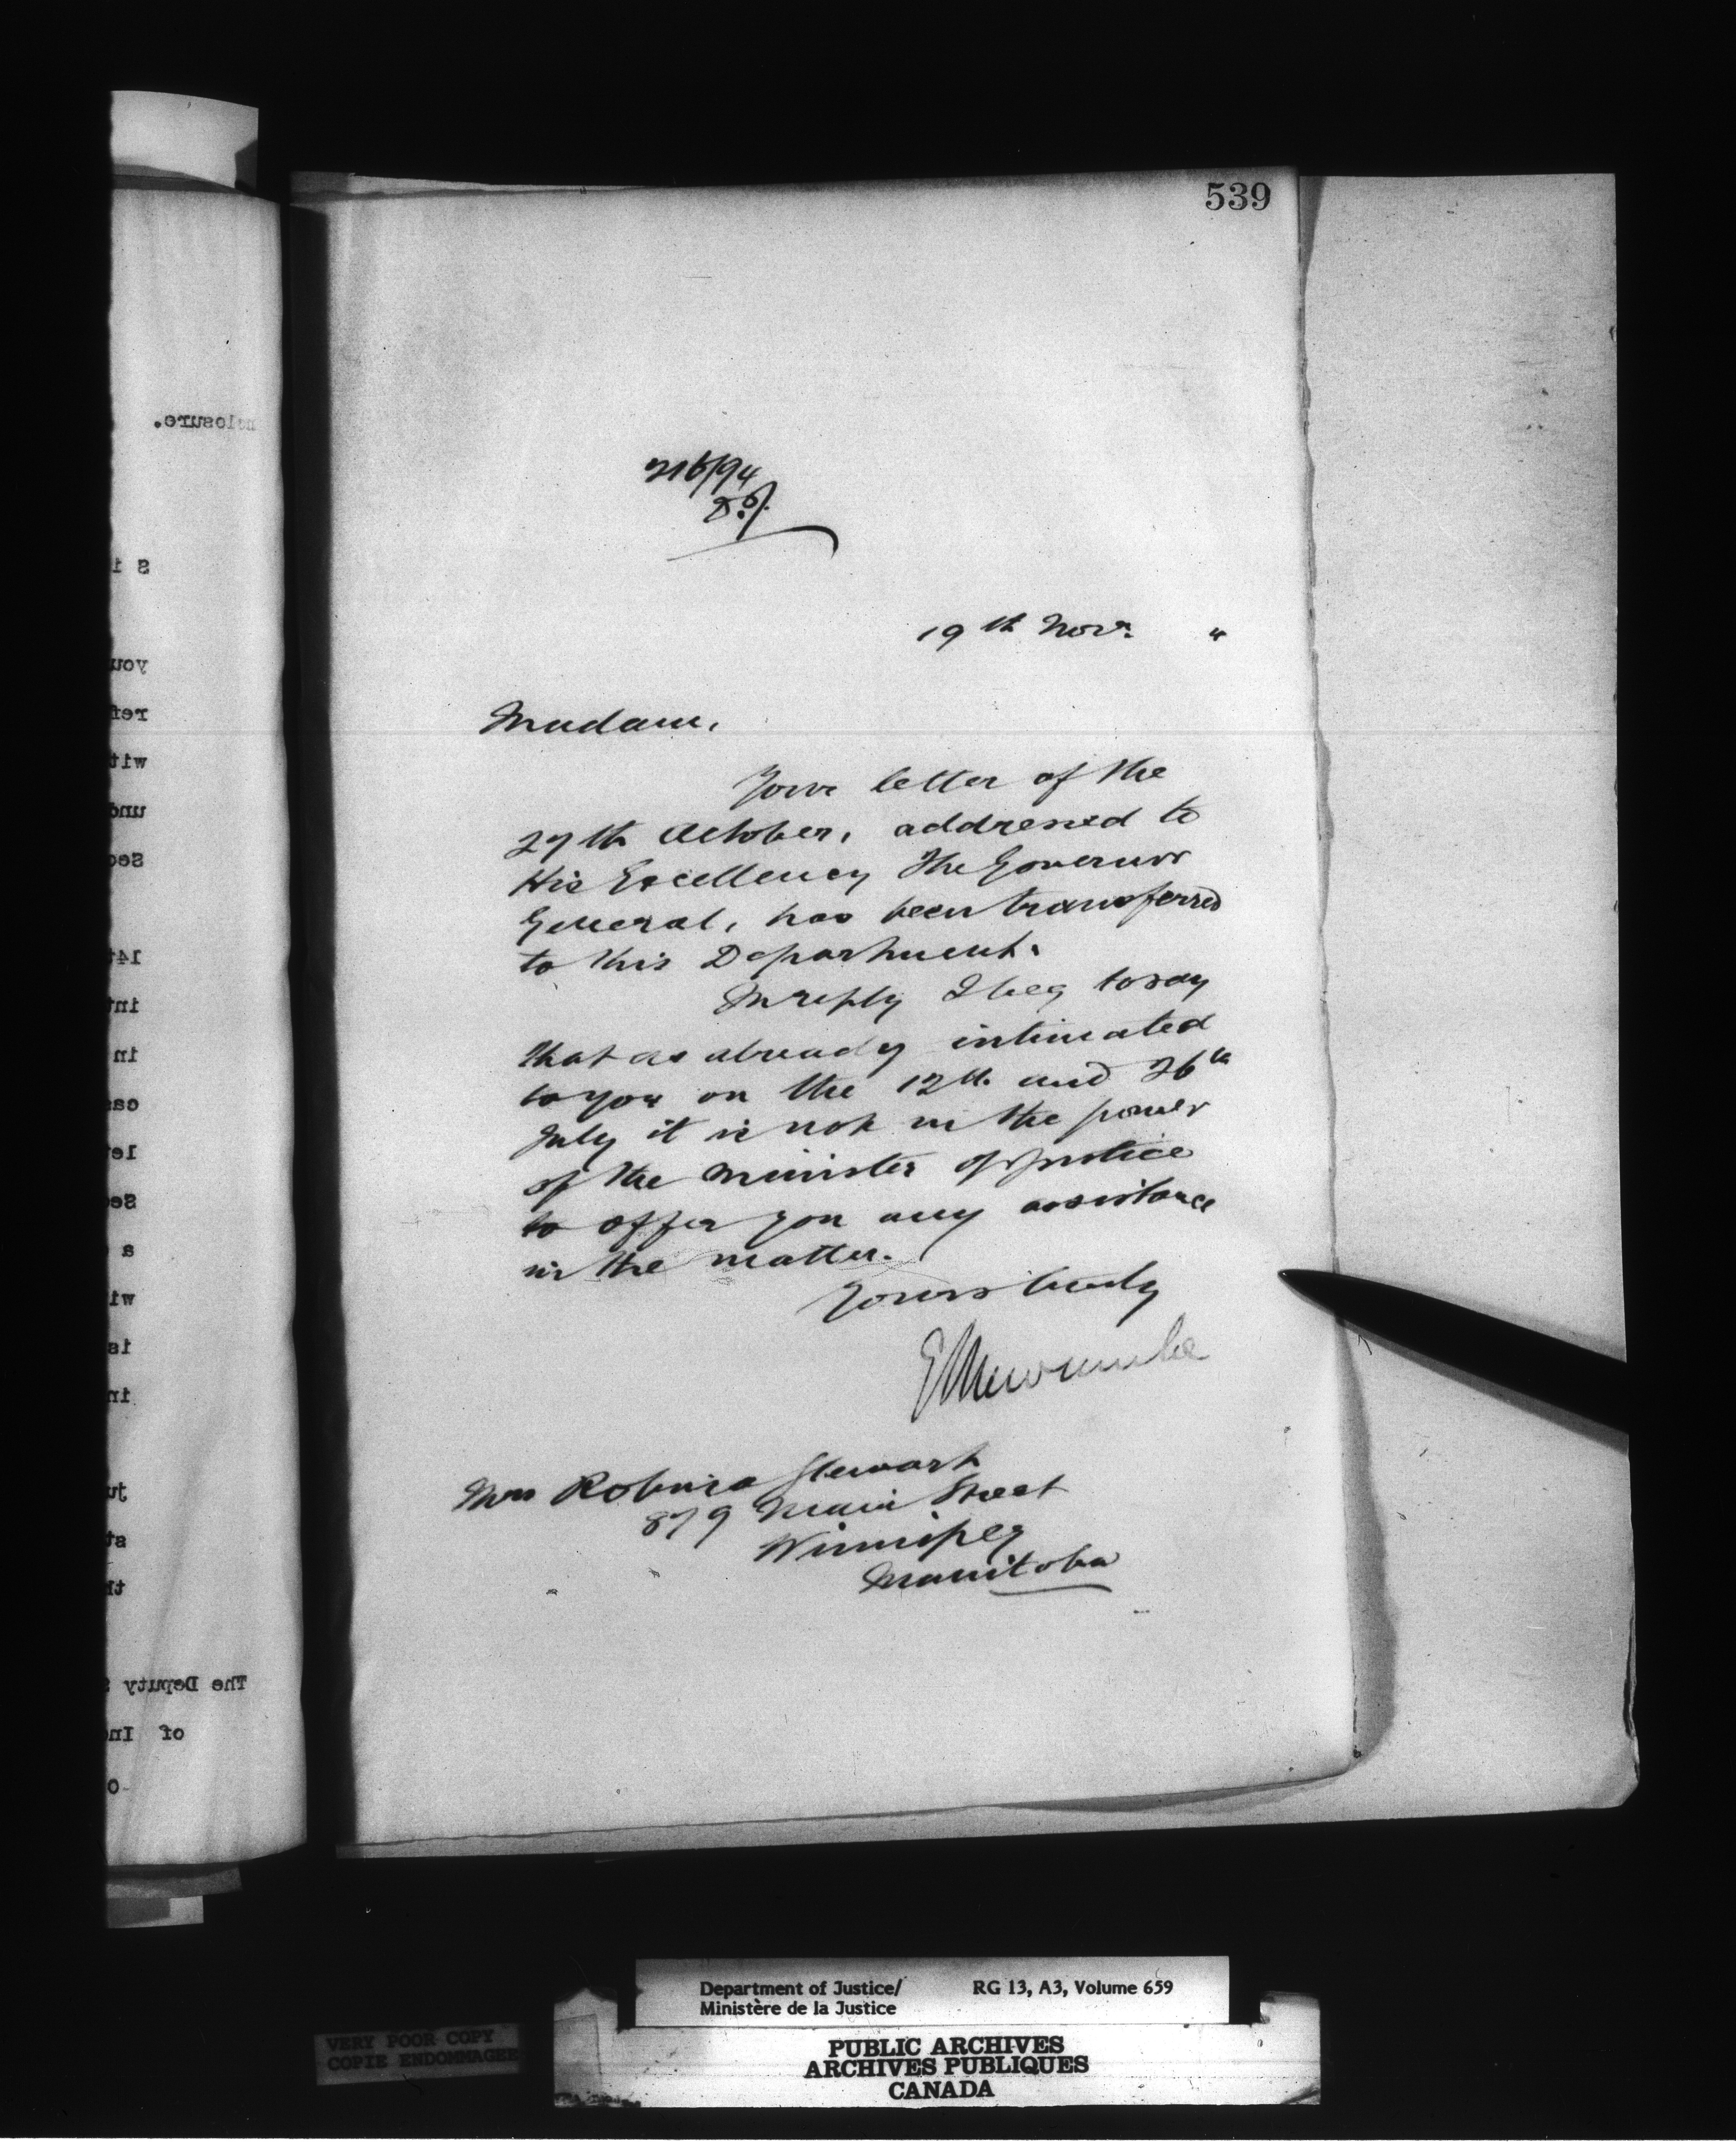 539
216/94
19th Novr. "
Madam,
Your letter of the
27th October, addressed to
His Excellency The Governor
General, has been transferred
to this Department.
In reply I beg to say
that as already intimated
to you on the 12th and 26th
July it is not in the power
of the Minister of Justice
to offer you any assistance
in the matter.
Yours truly
E Newcombe
Mrs Robina Stewart
879 Main Street
Winnipeg
Manitoba
nclosure.
The Deputy
of In
Department of Justice/
Ministère de la Justice
RG 13, A3, Volume 659
PUBLIC ARCHIVES
ARCHIVES PUBLIQUES
CANADA
VERY POOR COPY
COPIE ENDOMMAGEE